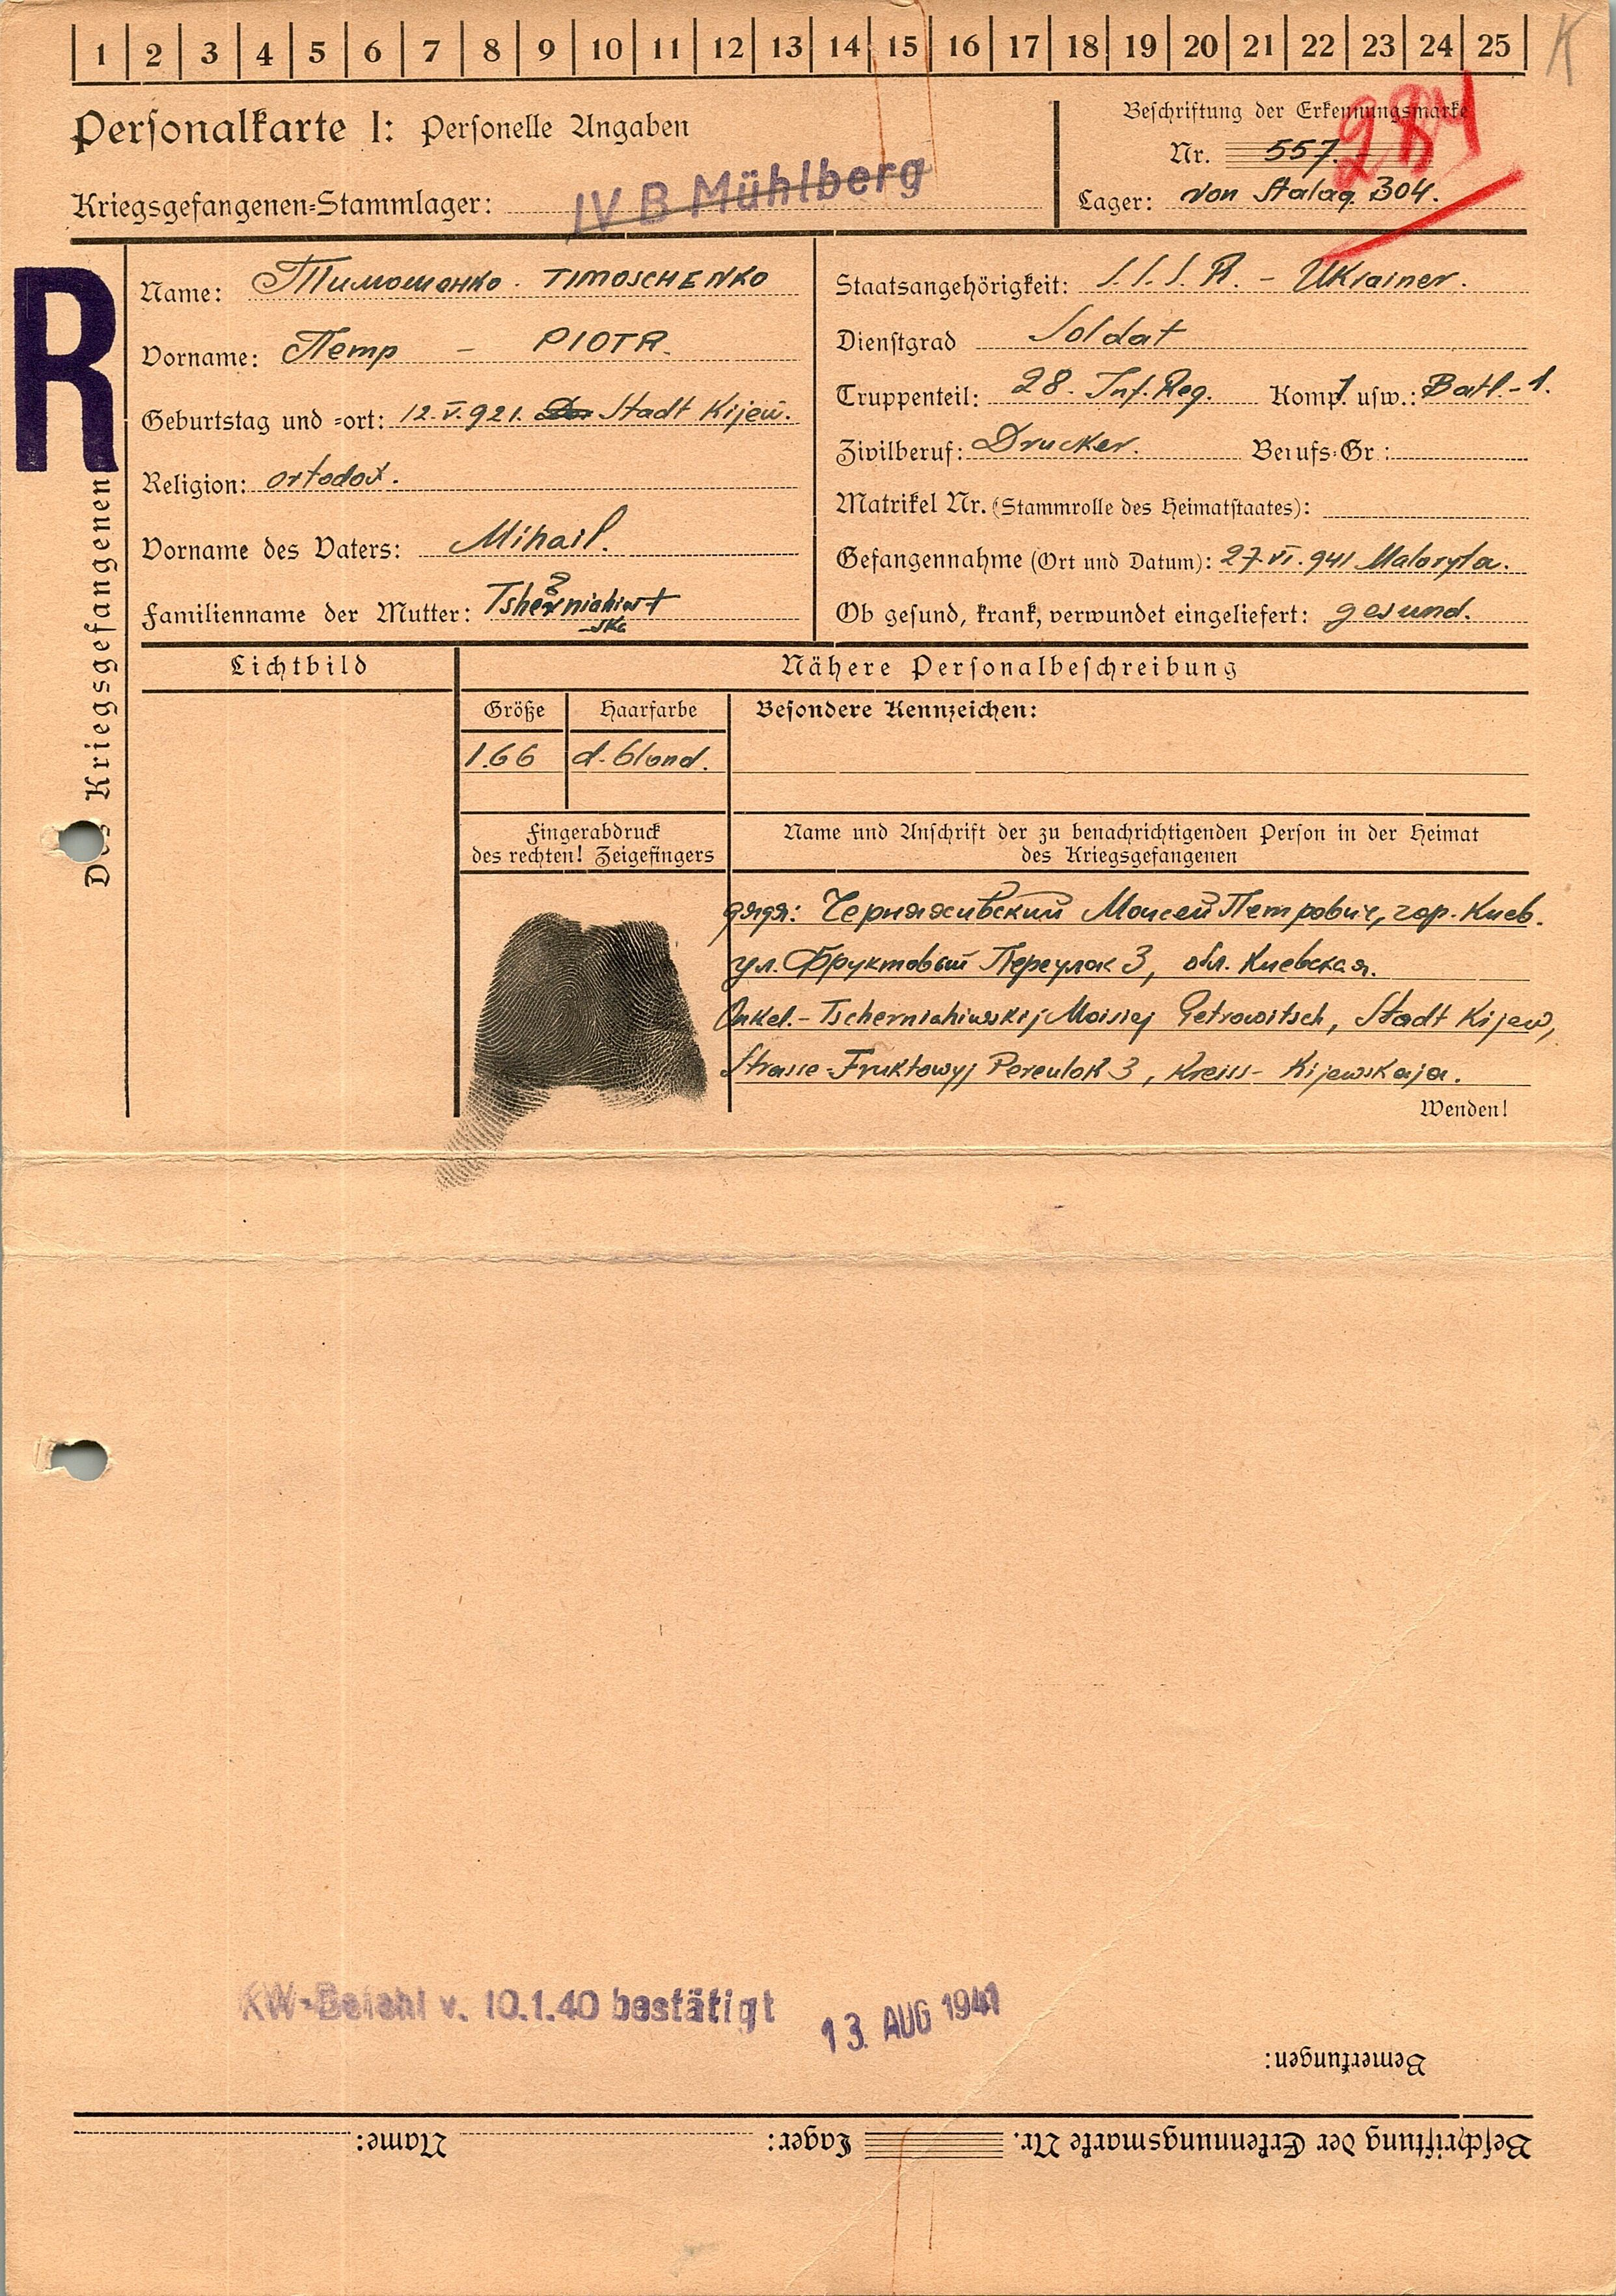 1 2 3 4 5 6 7 8 9 10 11 12 13 14 15 16 17 18 19 20 21 22 23 24 25
K
Personalkarte I: Personelle Angaben
Kriegsgefangenen-Stammlager: IV B Mühlberg
Beschriftung der Erkennungsmarke
Nr. 557.
284
Lager: von Stalag 304.
R
Des Kriegsgefangenen
Name: Тимошенко. TIMOSCHENKO
Vorname: Петр – PIOTR.
Geburtstag und =ort: 12.V.921. Stadt Kijew.
Religion: ortodox.
Vorname des Vaters: Mihail.
Familienname der Mutter:
Staatsangehörigkeit: S.S.S.R. – Ukrainer.
Dienstgrad Soldat
Truppenteil: 28. Inf. Reg. Komp. usw.: Batl.-1.
Zivilberuf: Drucker. Berufs-Gr.:
Matrikel Nr. (Stammrolle des Heimatstaates):
Gefangennahme (Ort und Datum): 27.VI.941 Maloryta.
Ob gesund, krank, verwundet eingeliefert: gesund.
Lichtbild
Nähere Personalbeschreibung
Größe Haarfarbe Besondere Kennzeichen:
1.66 d. blond.
Fingerabdruck
des rechten! Zeigefingers
Name und Anschrift der zu benachrichtigenden Person in der Heimat
des Kriegsgefangenen
дядя: Черняхивский Моисей Петрович, гор. Киев.
ул. Фруктовый Переулок 3, обл. Киевская.
Onkel.- Tscherniahiwskij Moisiej Petrowitsch, Stadt Kijew,
Strasse-Fruktowyj Pereulok 3, Kreiss- Kijewskaja.
Wenden!
KW-Befehl v. 10.1.40 bestätigt 13. AUG 1941
Bemerkungen:
Beschriftung der Erkennungsmarke Nr. Lager: Name: